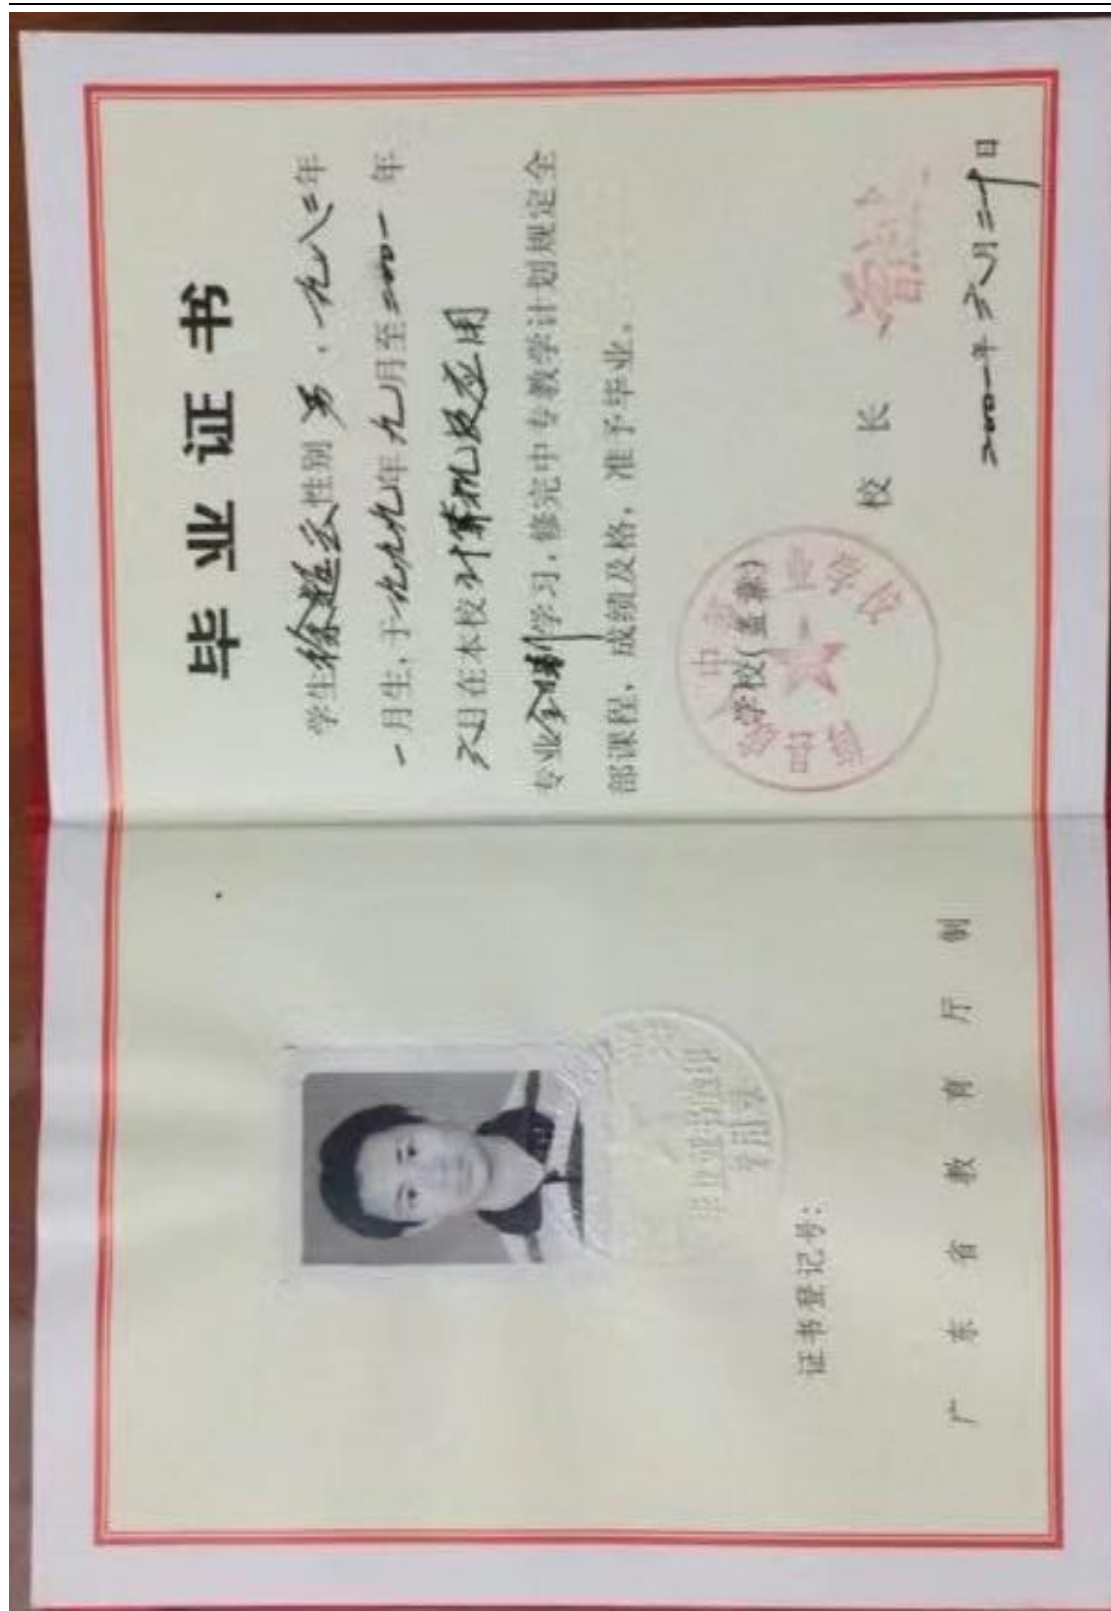 毕业证书
学生徐超云性别男，一九八二年
一月生，于一九九九年九月至二〇〇一年
六月在本校计算机及应用
专业全日制学习，修完中专教学计划规定全
部课程，成绩及格，准予毕业。
学校(盖章)
校长
二〇〇一年六月二十日
毕业证书验印
专用章
证书登记号：
广东省教育厅制